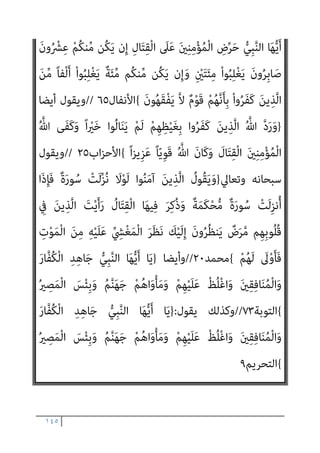 أَيُّهَا النَّبِيُّ حَرِّضِ الْمُؤْمِنِينَ عَلَى الْقِتَالِ إِن يَكُن مِّنكُمْ عِشْرُونَ
صَابِرُونَ يَغْلِبُواْ مِئَتَيْنِ وَإِن يَكُن مِّنكُم مِّئَةٌ يَغْلِبُواْ أَلْفًا مِّنَ
الَّذِينَ كَفَرُواْ بِأَنَّهُمْ قَوْمٌ لاَّ يَفْقَهُونَ }الأنفال٦٥ //ويقول أيضا
}وَرَدَّ اللَّهُ الَّذِينَ كَفَرُوا بِغَيْظِهِمْ لَمْ يَنَالُوا خَيْرًا وَكَفَى اللَّهُ
الْمُؤْمِنِينَ الْقِتَالَ وَكَانَ اللَّهُ قَوِيًّا عَزِيزًا }الأحزاب٢٥ //ويقول
سبحانه وتعالي}وَيَقُولُ الَّذِينَ آمَنُوا لَوْلَا نُزِّلَتْ سُورَةٌ فَإِذَا
أُنزِلَتْ سُورَةٌ مُّحْكَمَةٌ وَذُكِرَ فِيهَا الْقِتَالُ رَأَيْتَ الَّذِينَ فِي
قُلُوبِهِم مَّرَضٌ يَنظُرُونَ إِلَيْكَ نَظَرَ الْمَغْشِيِّ عَلَيْهِ مِنَ الْمَوْتِ
فَأَوْلَى لَهُمْ }محمد٢٠//وأيضا }يَا أَيُّهَا النَّبِيُّ جَاهِدِ الْكُفَّارَ
وَالْمُنَافِقِينَ وَاغْلُظْ عَلَيْهِمْ وَمَأْوَاهُمْ جَهَنَّمُ وَبِئْسَ الْمَصِيرُ
}التوبة٧٣//وكذلك يقول:}يَا أَيُّهَا النَّبِيُّ جَاهِدِ الْكُفَّارَ
وَالْمُنَافِقِينَ وَاغْلُظْ عَلَيْهِمْ وَمَأْوَاهُمْ جَهَنَّمُ وَبِئْسَ الْمَصِيرُ
}التحريم٩
١٤٥